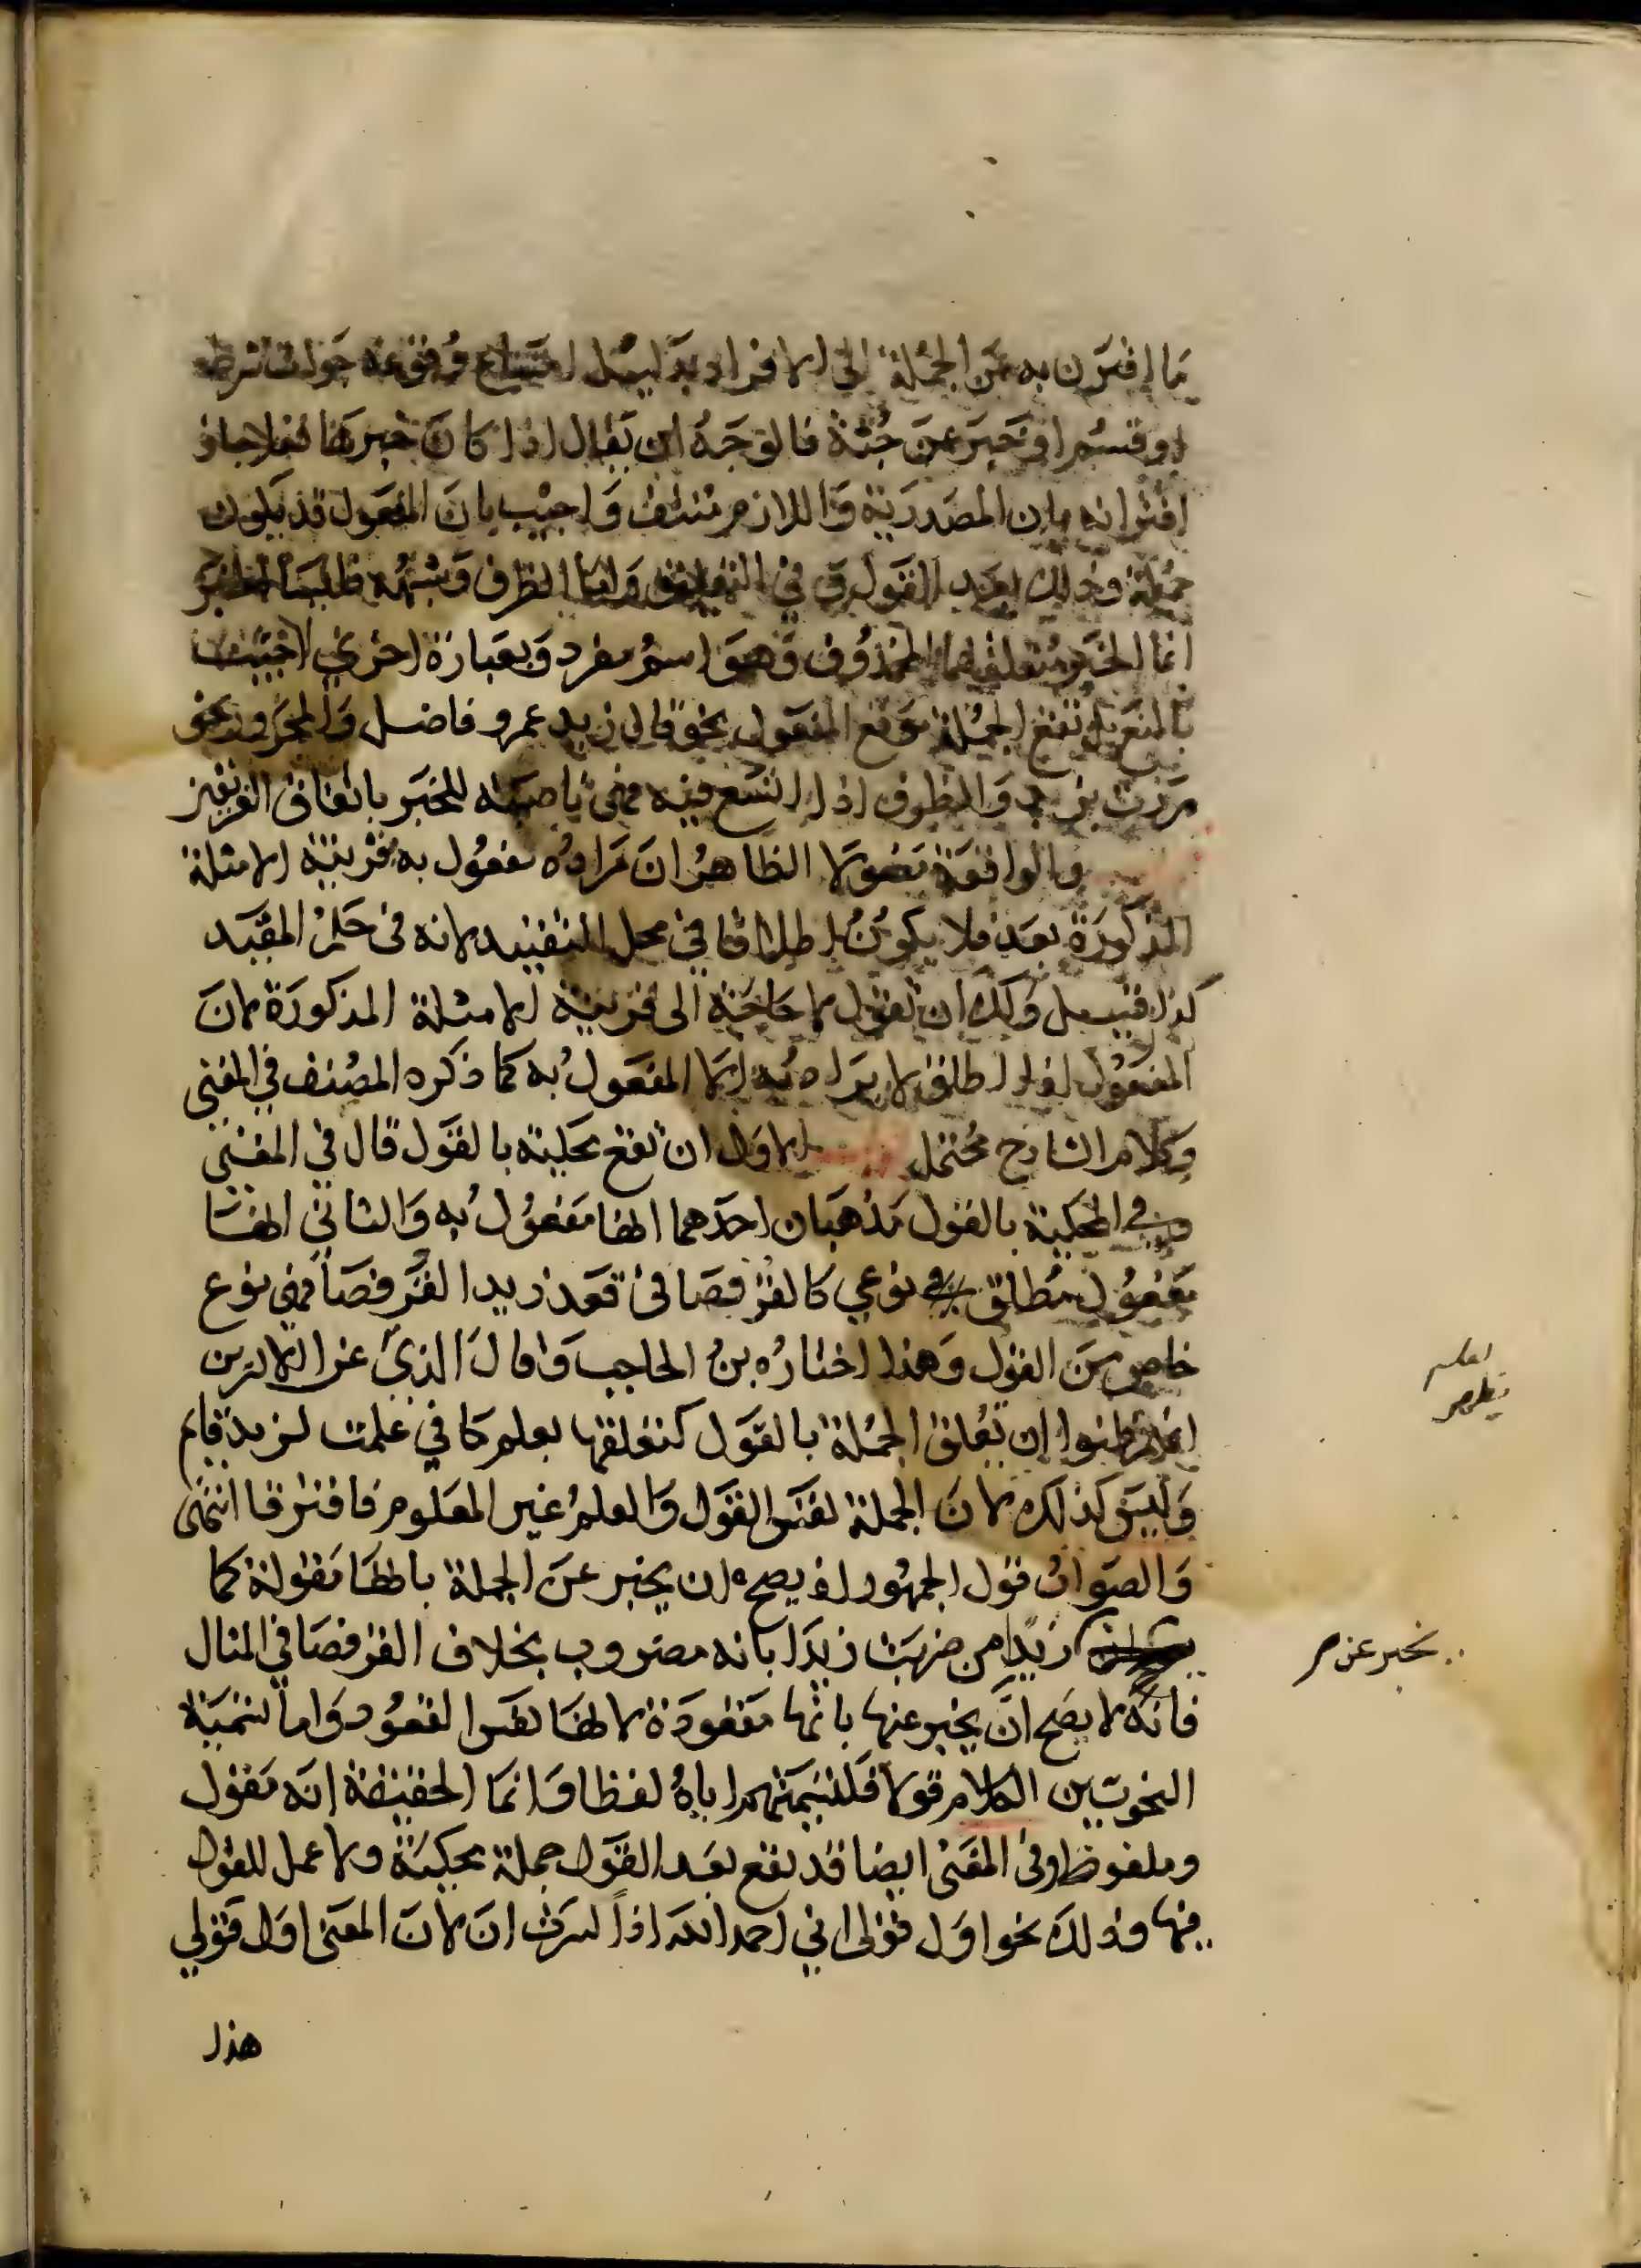 ما اقترن به عن الجملة الى الافراد بدليل امتناع وقوعه جواب شرط
او قسم او خبر عن جثة فالوجه ان يقال اذا كان خبرها فعلا جاز
اقترانه بان المصدرية واللازم منتف واجيب بان المفعول قد يكون
جملة وذلك بعد القول وفي التعليق واما الظرف وشبهه فليسا الخبر
انما الخبر متعلقهما المحذوف وهو اسم مفرد وبعبارة اخرى اجيب
بالمنع بل تقع الجملة موقع المفعول نحو قال زيد عمرو فاضل والمجرور نحو
مررت بزيد والظرف اذا اتسع فيه فهي ناصبة للخبر باتفاق الفريقين
والواقعة مفعولا الظاهر ان مراده مفعول به بقرينة الامثلة
المذكورة بعد فلا يكون اطلاقا في محل التقييد لانه في حكم المقيد
كذا قيل ولك ان تقول لا حاجة الى قرينة الامثلة المذكورة لان
المفعول اذا اطلق لا يراد به الا المفعول به كما ذكره المصنف في المغني
وكلام الشارح محتمل الاول ان تقع محكية بالقول قال في المغني
وفي المحكية بالقول مذهبان احدهما انها مفعول به والثاني انها
مفعول مطلق نوعي كالقرفصا في قعد زيد القرفصا فهي نوع
خاص من القول وهذا اختاره بن الحاجب وقال الذي غر الاكثرين
انهم ظنوا ان تعلق الجملة بالقول كتعلقها بعلم كما في علمت لزيد قايم
وليس كذلك لان الجملة نفس القول والعلم غير المعلوم فافترقا انتهى
والصواب قول الجمهور اذ يصح ان يخبر عن الجملة بانها مقولة كما
زيدا من ضربت زيدا بانه مضروب بخلاف القرفصا في المثال
نخبر عن صح
فانه لا يصح ان يخبر عنها بانها مقعودة لانها نفس القعود واما تسمية
النحويين الكلام قولا فلتسميتهم اياه لفظا وانما الحقيقة انه مقول
وملفوظ وفي المغني ايضا قد يقع بعد القول جملة محكية ولا عمل للقول
فيها وذلك نحو اول قولي اني احمد الله اذا كسرت ان لان المعنى اول قولي
هذا